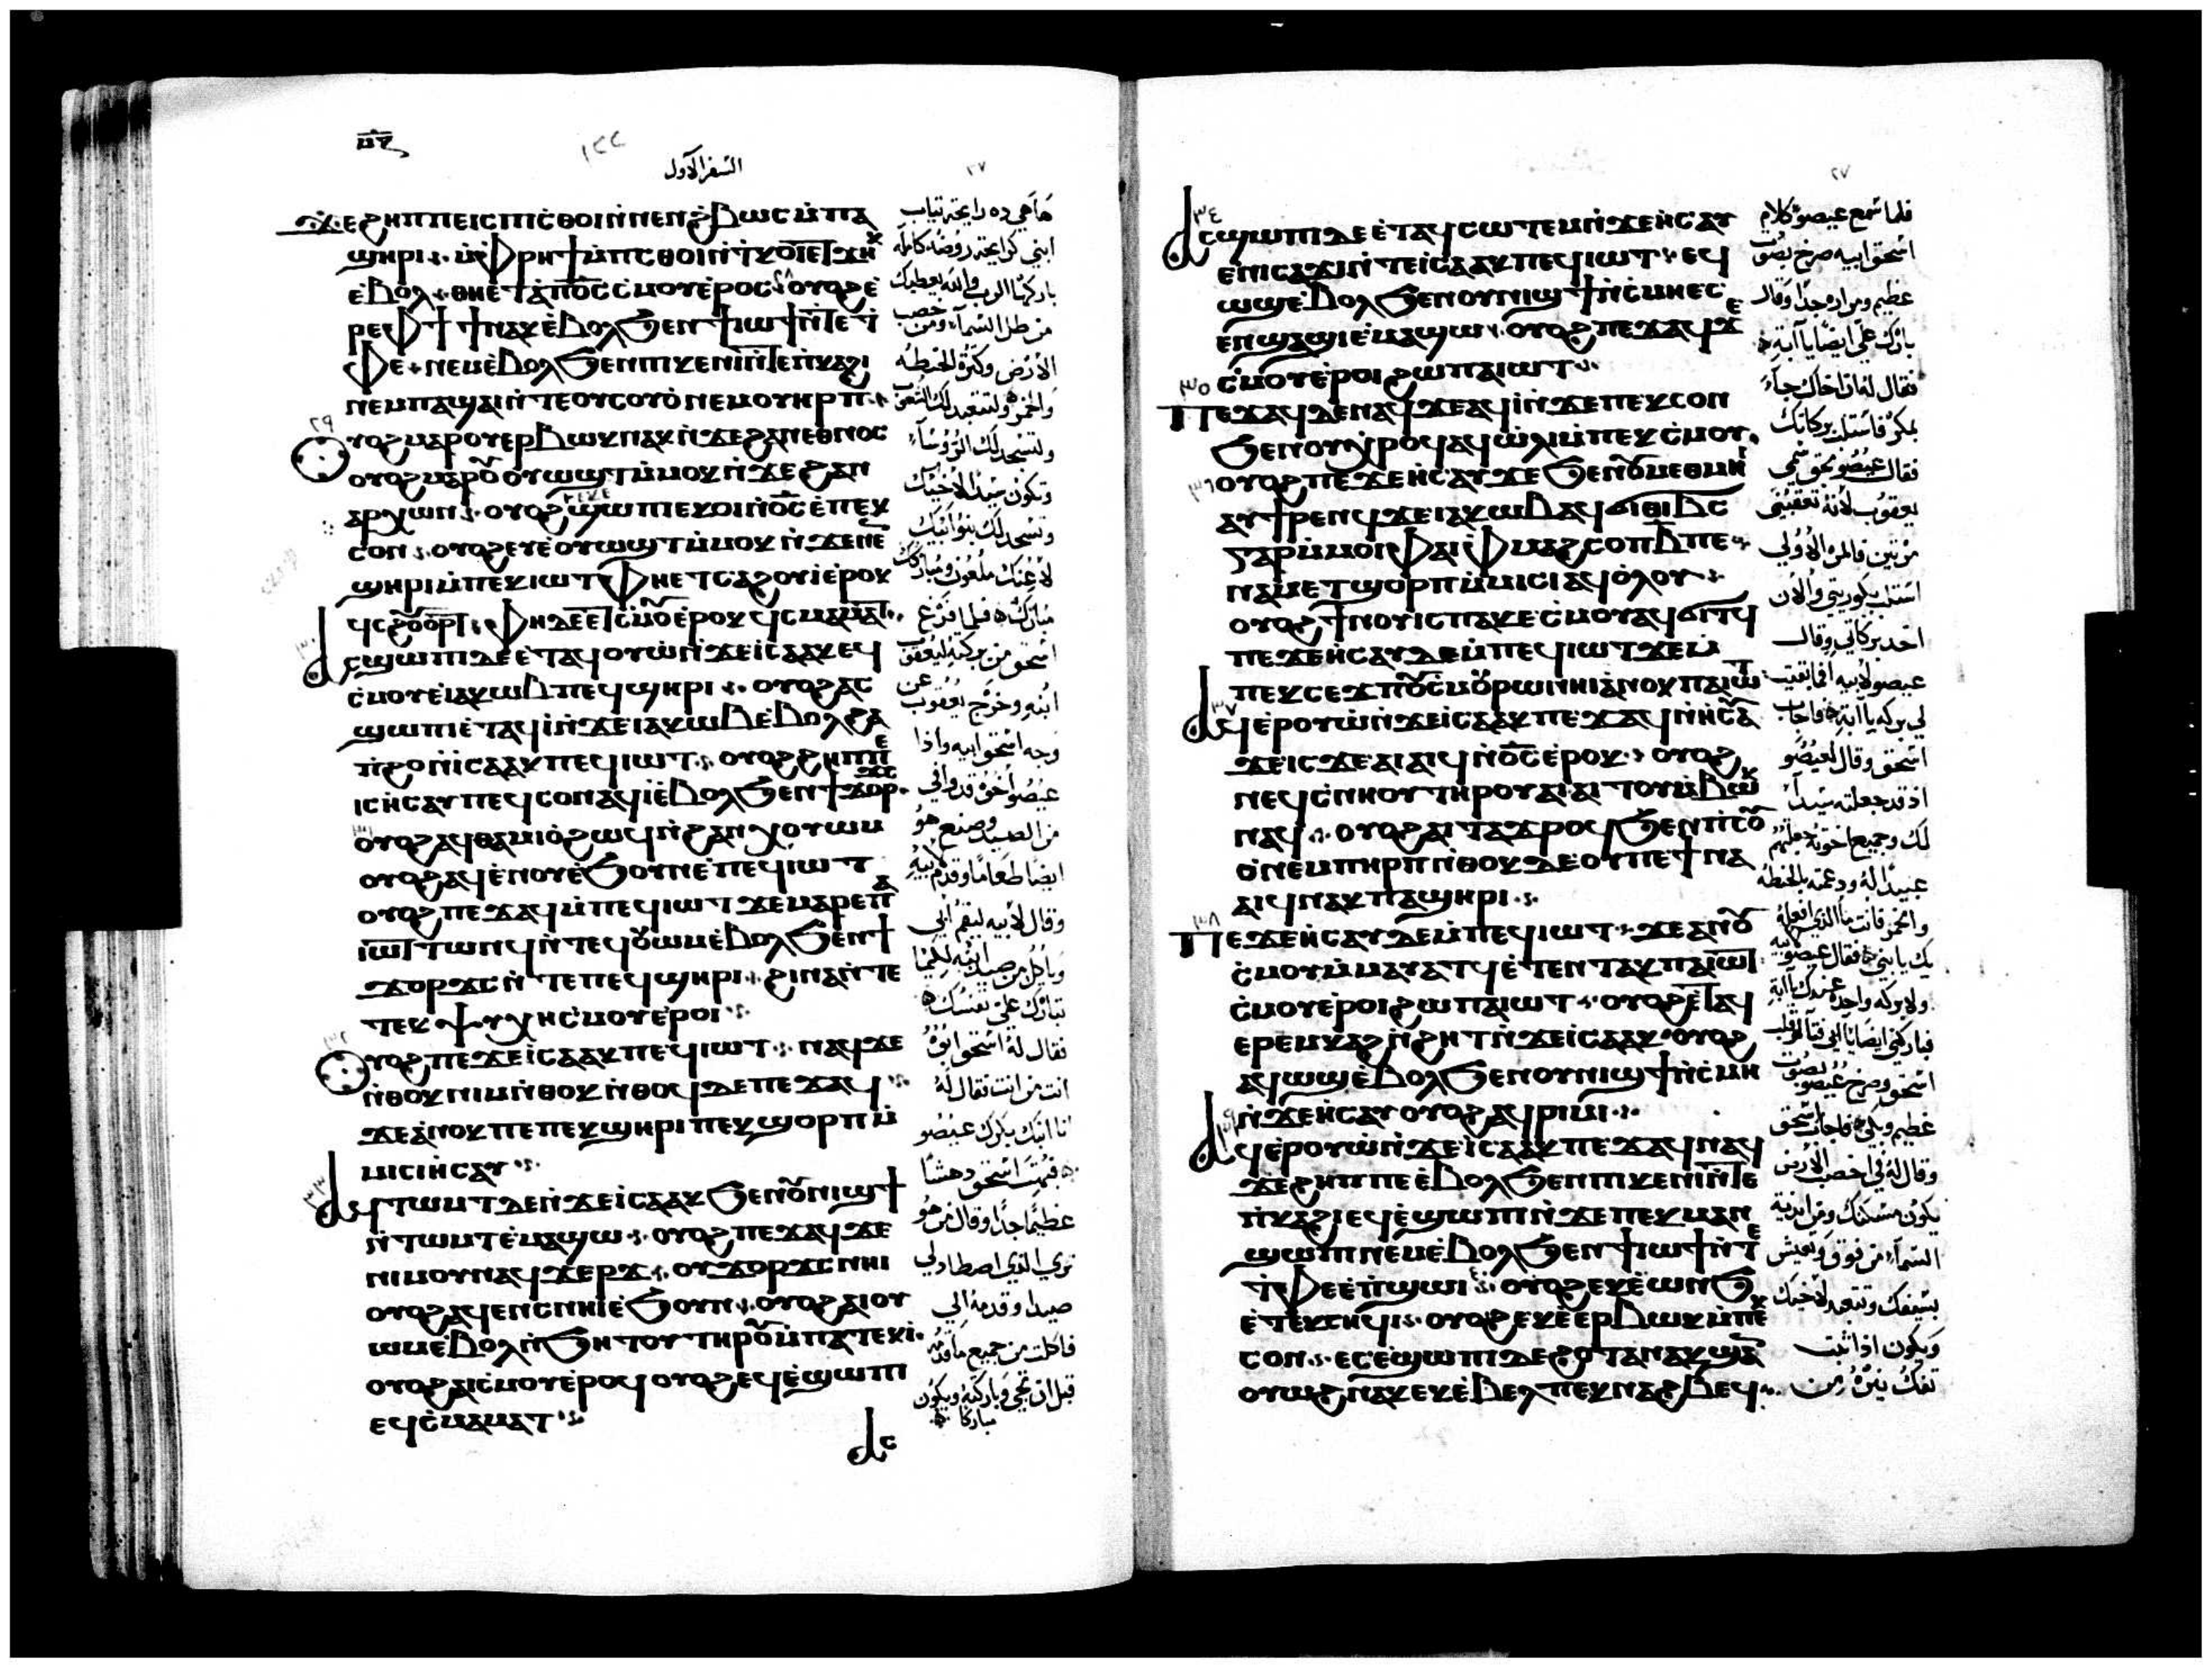 السفر الأول
ϫⲉϩⲏⲡⲡⲉⲓⲥⲡⲓⲥⲑⲟⲓⲛ̀ⲛⲉⲛϩ̀ⲃⲱⲥⲙ̀ⲡⲁ
ϣⲏⲣⲓ ⲙ̀ⲫⲣⲏϯⲙ̀ⲡⲥⲑⲟⲓⲛ̀ⲧⲕⲟⲓⲉⲧϫⲏⲕ
ⲉ̀ⲃⲟⲗ ⲑⲏⲉ̀ⲧⲁⲡ⳪ⲥ̀ⲙⲟⲩⲉ̀ⲣⲟⲥ ⲟⲩⲟϩⲉ̀
ⲣⲉⲫϯϯⲛⲁⲕⲉ̀ⲃⲟⲗϧⲉⲛϯⲓⲱϯⲛ̀ⲧⲉⲧ̀
ⲫⲉ ⲛⲉⲙⲉ̀ⲃⲟⲗϧⲉⲛⲡⲓⲕⲉⲛⲓⲛ̀ⲧⲉⲡ̀ⲕⲁϩⲓ
ⲛⲉⲙⲡⲁϣⲁⲓⲛ̀ⲧⲉⲟⲩⲥⲟⲩⲟ̀ⲛⲉⲙⲟⲩⲏⲣⲡ
ⲟⲩⲟϩⲙⲁⲣⲟⲩⲉⲣⲃⲱⲕⲛⲁⲕⲛ̀ϫⲉϩⲁⲛⲉⲑⲛⲟⲥ
ⲟⲩⲟϩⲙⲁⲣⲟⲩⲟⲩⲱϣⲧⲙ̀ⲙⲟⲕⲛ̀ϫⲉϩⲁⲛ
ⲁⲣⲭⲱⲛ ⲟⲩⲟϩϣⲱⲡⲓⲉⲕⲟⲓⲛ̀⳪ⲉ̀ⲡⲉⲕ
ⲥⲟⲛ ⲟⲩⲟϩⲉⲩⲉ̀ⲟⲩⲱϣⲧⲙ̀ⲙⲟⲕⲛ̀ϫⲉⲛⲉ
ϣⲏⲣⲓⲙ̀ⲡⲉⲕⲓⲱⲧ ⲫⲏⲉⲧⲥⲁϩⲟⲩⲓ̀ⲉ̀ⲣⲟⲕ
ϥⲥϩⲟⲩⲟⲣⲧ ⲫⲏⲇⲉⲉⲧⲥ̀ⲙⲟⲩⲉ̀ⲣⲟⲕϥⲥⲙⲁⲙⲁⲧ
ⲁⲥϣⲱⲡⲓⲇⲉⲉ̀ⲧⲁϥⲟⲩⲱⲛ̀ϫⲉⲓⲥⲁⲁⲕⲉϥ
ⲥ̀ⲙⲟⲩⲉ̀ⲓⲁⲕⲱⲃⲡⲉϥϣⲏⲣⲓ ⲟⲩⲟϩⲁⲥ
ϣⲱⲡⲓⲉ̀ⲧⲁϥⲓ̀ⲛ̀ϫⲉⲓⲁⲕⲱⲃⲉ̀ⲃⲟⲗϩⲁ
ⲡ̀ϩⲟⲛ̀ⲓⲥⲁⲁⲕⲡⲉϥⲓⲱⲧ ⲟⲩⲟϩϩⲏⲡⲡⲉ
ⲓⲥⲏ̀ⲥⲁⲩⲡⲉϥⲥⲟⲛⲁϥⲓ̀ⲉ̀ⲃⲟⲗϧⲉⲛϯϫⲟⲣϫⲥ
ⲟⲩⲟϩⲁϥⲑⲁⲙⲓⲟ̀ϩⲱϥⲛ̀ϩⲁⲛϭ̀ⲟⲩⲱⲙ
ⲟⲩⲟϩⲁϥⲉⲛⲟⲩⲉ̀ϧⲟⲩⲛⲉ̀ⲡⲉϥⲓⲱⲧ
ⲟⲩⲟϩⲡⲉϫⲁϥⲙ̀ⲡⲉϥⲓⲱⲧϫⲉⲙⲁⲣⲉⲡⲁ
ⲓⲱⲧⲧⲱⲛϥⲛ̀ⲧⲉϥⲟⲩⲱⲙⲉ̀ⲃⲟⲗϧⲉⲛϯ
ϫⲟⲣϫⲥⲛ̀ⲧⲉⲡⲉϥϣⲏⲣⲓ ϩⲓⲛⲁⲛ̀ⲧⲉ
ⲧⲉⲕⲯⲩⲭⲏⲥ̀ⲙⲟⲩⲉ̀ⲣⲟⲓ
ⲟⲩⲟϩⲡⲉϫⲉⲓⲥⲁⲁⲕⲡⲉϥⲓⲱⲧ ⲛⲁϥϫⲉ
ⲛ̀ⲑⲟⲕⲛⲓⲙⲛ̀ⲑⲟⲕⲛ̀ⲑⲟϥⲇⲉⲡⲉϫⲁϥ
ϫⲉⲁ̀ⲛⲟⲕⲡⲉⲡⲉⲕϣⲏⲣⲓⲡⲉⲕϣⲟⲣⲡⲙ̀
ⲙⲓⲥⲓⲏ̀ⲥⲁⲩ
ⲁϥⲧⲱⲙⲧⲇⲉⲛ̀ϫⲉⲓⲥⲁⲁⲕϧⲉⲛⲟⲩⲛⲓϣϯ
ⲛ̀ⲧⲱⲙⲧⲉ̀ⲙⲁϣⲱ ⲟⲩⲟϩⲡⲉϫⲁϥϫⲉ
ⲛⲓⲙⲟⲩⲛⲁϥϫⲉⲣϫ ⲟⲩϫⲟⲣϫⲥⲛⲏⲓ
ⲟⲩⲟϩⲁϥⲉⲛⲥⲛⲏⲓⲉ̀ϧⲟⲩⲛ ⲟⲩⲟϩⲁⲓⲟⲩ
ⲱⲙⲉ̀ⲃⲟⲗⲛ̀ϧⲏⲧⲟⲩⲧⲏⲣⲟⲩⲙ̀ⲡⲁⲧⲉⲕⲓ̀
ⲟⲩⲟϩⲁⲓⲥ̀ⲙⲟⲩⲉ̀ⲣⲟϥⲟⲩⲟϩⲉϥⲉ̀ϣⲱⲡⲓ
ⲉϥⲥ̀ⲙⲁⲙⲁⲧ
ⲁⲥ
هاهي ده رايحة تياب
ابني كرايحة روضه كامله
باركها الرب والله يعطيك
من طل السمآء ومن خصب
الأرض وكثرة الحنطه
والخمر ولتتعبد لك الشعوب
ولتسجد لك الرؤسآء
وتكون سيدا لأخيك
وتسجد لك بنو ابيك
لاعنك ملعون ومباركك
مبارك فلما فرغ
اسحق من بركته ليعقوب
ابنه وخرج يعقوب عن
وجه اسحق ابيه واذا
عيصو اخوه قد وافي
من الصيد وصنع هو
ايضا طعاما وقدم لابيه
وقال لأبيه ليقم ابي
وياكل من صيد ابنه لكيما
تباركني نفسك
فقال له اسحق ابوه
انت من انت فقال له
انا ابنك بكرك عيصو
فبهت اسحق دهشا
عظيما جدا وقال من هو
تري الذي اصطاد لي
صيدا وقدمه الي
فاكلت من جميع ما قدمه
قبل ان تجي وباركته ويكون
مباركا
ⲁⲥϣⲱⲡⲓⲇⲉⲉ̀ⲧⲁϥⲥⲱⲧⲉⲙⲛ̀ϫⲉⲏ̀ⲥⲁⲩ
ⲉ̀ⲛⲓⲥⲁϫⲓⲛ̀ⲧⲉⲓⲥⲁⲁⲕⲡⲉϥⲓⲱⲧ ⲉϥ
ⲱϣⲉ̀ⲃⲟⲗϧⲉⲛⲟⲩⲛⲓϣϯⲛ̀ⲥ̀ⲙⲏⲉⲥ
ⲉⲛϣⲁϣⲓⲉ̀ⲙⲁϣⲱ ⲟⲩⲟϩⲡⲉϫⲁϥϫⲉ
ⲥ̀ⲙⲟⲩⲉ̀ⲣⲟⲓϩⲱⲡⲁⲓⲱⲧ
ⲡⲉϫⲁϥⲇⲉⲛⲁϥϫⲉⲁϥⲓ̀ⲛ̀ϫⲉⲡⲉⲕⲥⲟⲛ
ϧⲉⲛⲟⲩⲭ̀ⲣⲟϥⲁϥⲱ̀ⲗⲓⲙ̀ⲡⲉⲕⲥ̀ⲙⲟⲩ
ⲟⲩⲟϩⲡⲉϫⲉⲏ̀ⲥⲁⲩϫⲉϧⲉⲛⲟⲩⲙⲉⲑⲙⲏⲓ
ⲁⲩϯⲣⲉⲛϥϫⲉⲓⲁⲕⲱⲃⲁϥϭⲓⲑⲓⲃⲥ
ⲅⲁⲣⲙ̀ⲙⲟⲓ ⲫⲁⲓⲫ̀ⲙⲁϩⲥⲟⲡⲃ̅ⲡⲉ
ⲧⲁⲙⲉⲧϣⲟⲣⲡⲙ̀ⲙⲓⲥⲓⲁϥⲟ̀ⲗⲟⲩ
ⲟⲩⲟϩϯⲛⲟⲩⲓⲥⲡⲁⲕⲉⲥ̀ⲙⲟⲩⲁϥϭⲓⲧϥ
ⲡⲉϫⲉⲏ̀ⲥⲁⲩⲇⲉⲙ̀ⲡⲉϥⲓⲱⲧϫⲉⲙ̀
ⲡⲉⲕⲥⲉϫⲡⲟⲩⲥ̀ⲙⲟⲩϩⲱⲛⲏⲓⲁ̀ⲛⲟⲕⲡⲁⲓⲱⲧ
ⲁϥⲉⲣⲟⲩⲱ̀ⲛ̀ϫⲉⲓⲥⲁⲁⲕⲡⲉϫⲁϥⲛ̀ⲏ̀ⲥⲁⲩ
ϫⲉⲓⲥϫⲉⲁⲓⲁⲓϥⲛ̀⳪ⲉ̀ⲣⲟⲕ ⲟⲩⲟϩ
ⲛⲉϥⲥ̀ⲛⲏⲟⲩⲧⲏⲣⲟⲩⲁⲓⲁⲓⲧⲟⲩⲙ̀ⲃⲱⲕ
ⲛⲁϥ ⲟⲩⲟϩⲁⲓⲧⲁϫⲣⲟϥϧⲉⲛⲡⲓⲥⲟⲩ
ⲟ̀ⲛⲉⲙⲡⲓⲏⲣⲡⲛ̀ⲑⲟⲕⲇⲉⲟⲩⲡⲉϯⲛⲁ
ⲁⲓϥⲛⲁⲕⲡⲁϣⲏⲣⲓ
ⲡⲉϫⲉⲏ̀ⲥⲁⲩⲇⲉⲙ̀ⲡⲉϥⲓⲱⲧ ϫⲉⲁⲛⲟⲩ
ⲥ̀ⲙⲟⲩⲙ̀ⲙⲁⲩⲁⲧϥⲉ̀ⲧⲉⲛⲧⲁⲕⲡⲁⲓⲱⲧ
ⲥ̀ⲙⲟⲩⲉ̀ⲣⲟⲓϩⲱⲡⲁⲓⲱⲧ ⲟⲩⲟϩⲉⲧⲁϥ
ⲉⲣⲉⲙⲕⲁϩⲛ̀ϩⲏⲧⲛ̀ϫⲉⲓⲥⲁⲁⲕ ⲟⲩⲟϩ
ⲁϥⲱϣⲉ̀ⲃⲟⲗϧⲉⲛⲟⲩⲛⲓϣϯⲛ̀ⲥ̀ⲙⲏ
ⲛ̀ϫⲉⲏ̀ⲥⲁⲩⲟⲩⲟϩⲁϥⲣⲓⲙⲓ
ⲁϥⲉ̀ⲣⲟⲩⲱ̀ⲛ̀ϫⲉⲓⲥⲁⲁⲕⲡⲉϫⲁϥⲛⲁϥ
ϫⲉϩⲏⲡⲡⲉⲉ̀ⲃⲟⲗϧⲉⲛⲡⲓⲕⲉⲛⲓⲛ̀ⲧⲉ
ⲡ̀ⲕⲁϩⲓⲉϥⲉ̀ϣⲱⲡⲓⲛ̀ϫⲉⲡⲉⲕⲙⲁⲛ
ϣⲱⲡⲓⲛⲉⲙⲉ̀ⲃⲟⲗϧⲉⲛϯⲓⲱϯⲛ̀ⲧⲉ
ⲧ̀ⲫⲉⲉ̀ⲡ̀ϣⲱⲓ ⲟⲩⲟϩⲉⲕⲉ̀ⲱⲛϧ
ⲉ̀ⲧⲉⲕⲥⲏϥⲓ ⲟⲩⲟϩⲉⲕⲉ̀ⲉⲣⲃⲱⲕⲙ̀ⲡⲉⲕ
ⲥⲟⲛ ⲉⲥⲉ̀ϣⲱⲡⲓⲇⲉϩⲟⲧⲁⲛⲁⲕϣⲁⲛ
ⲟⲩⲱϩⲛⲁⲕⲉⲕⲉ̀ⲃⲉⲗⲡⲉⲕⲛⲁϩⲃⲉϥ
فلما سمع عيصو كلام
اسحق ابيه صرخ بصوت
عظيم ومراره جدا وقال
بارك علي ايضا يا أبه
فقال له اذا اخاك جآء
بمكر فاستلب بركاتك
فقال عيصو بحق سمي
يعقوب لأنه تعقبني
مرتين فالمره الأولي
استلب بكوريتي والأن
اخد بركاتي وقال
عيصو لأبيه افما بقيت
لي بركه يا أبه فاجاب
اسحق وقال لعيصو
اذ قد جعلته سيدا
لك وجميع اخوته جعلتهم
عبيدا له ودعمته بالحنطه
والخمر فانت ما الذي افعله
بك يا بني فقال عيصو لابيه
ولا بركه واحده عندك يا أبه
فباركني ايضا يا ابي فتالم قلب
اسحق وصرخ عيصو بصوت
عظيم وبكي فاجاب اسحق
وقال له في اخصب الأرض
يكون مسكنك ومن اندية
السمآء من فوق وتعيش
بسيفك وتتعبد لأخيك
ويكون اذا ثبت
تفك نيره من